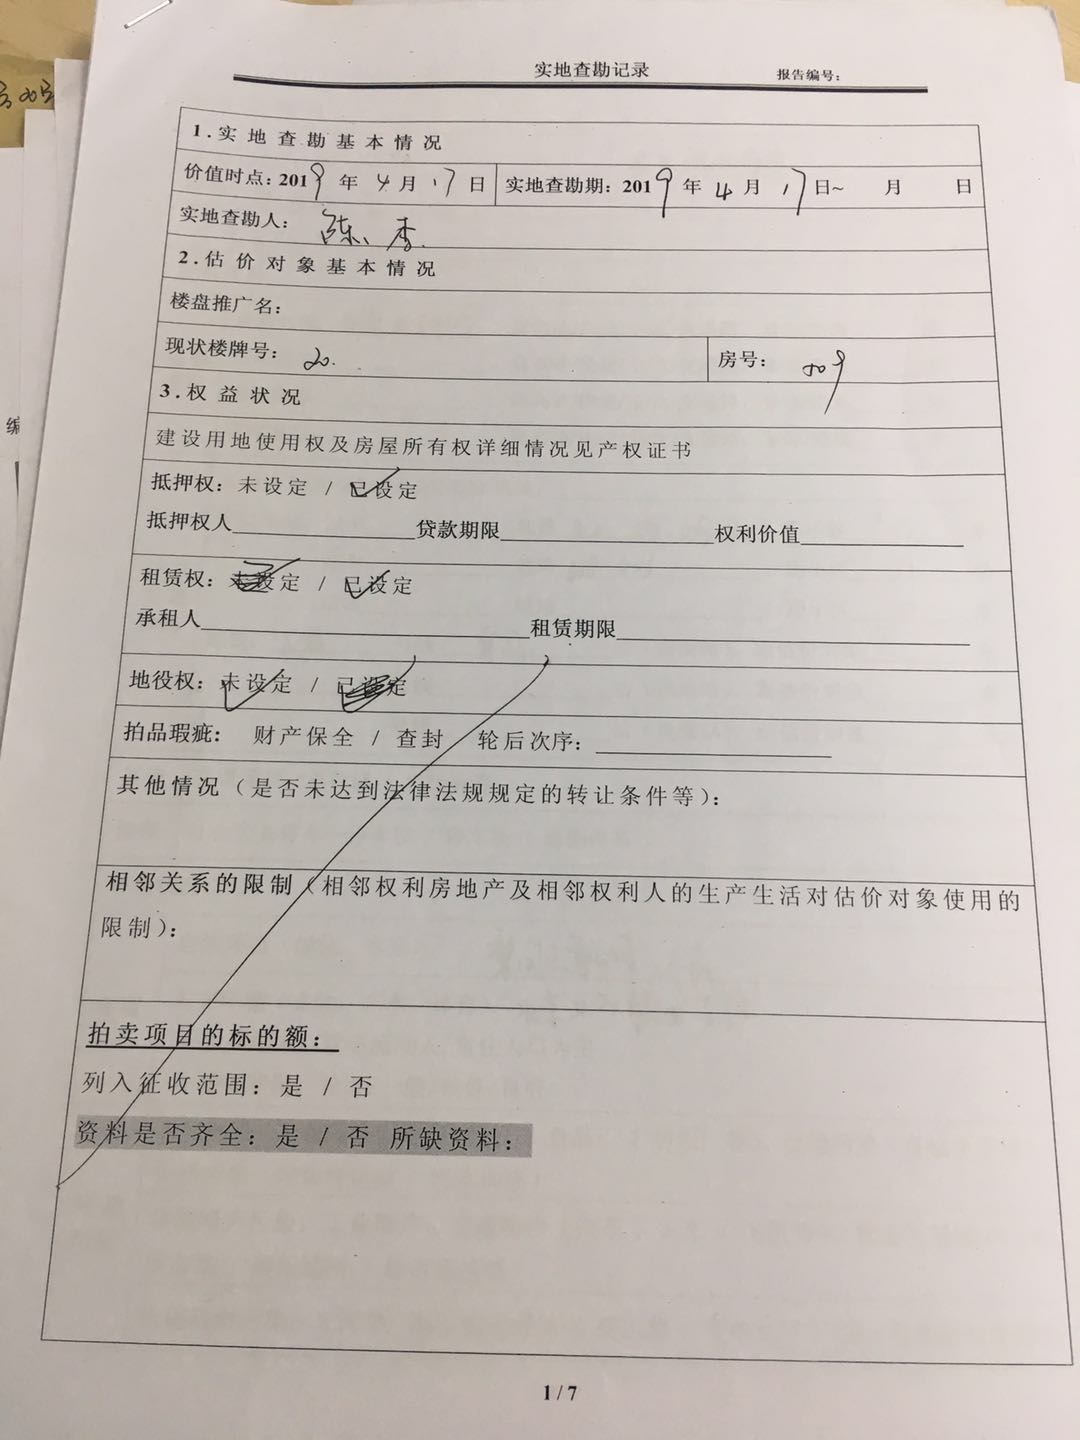 实地查勘记录 报告编号：
1.实地查勘基本情况
价值时点：2019年4月17日 实地查勘期：2019年4月17日~ 月 日
实地查勘人： 陈、李
2.估价对象基本情况
楼盘推广名：
现状楼牌号： 20. 房号： 809
3.权益状况
建设用地使用权及房屋所有权详细情况见产权证书
抵押权：未设定 / 已设定
抵押权人 贷款期限 权利价值
租赁权：未设定 / 已设定
承租人 租赁期限
地役权：未设定 / 已设定
拍品瑕疵： 财产保全 / 查封 轮后次序：
其他情况（是否未达到法律法规规定的转让条件等）：
相邻关系的限制（相邻权利房地产及相邻权利人的生产生活对估价对象使用的
限制）：
拍卖项目的标的额：
列入征收范围：是 / 否
资料是否齐全：是 / 否 所缺资料：
编
1/7